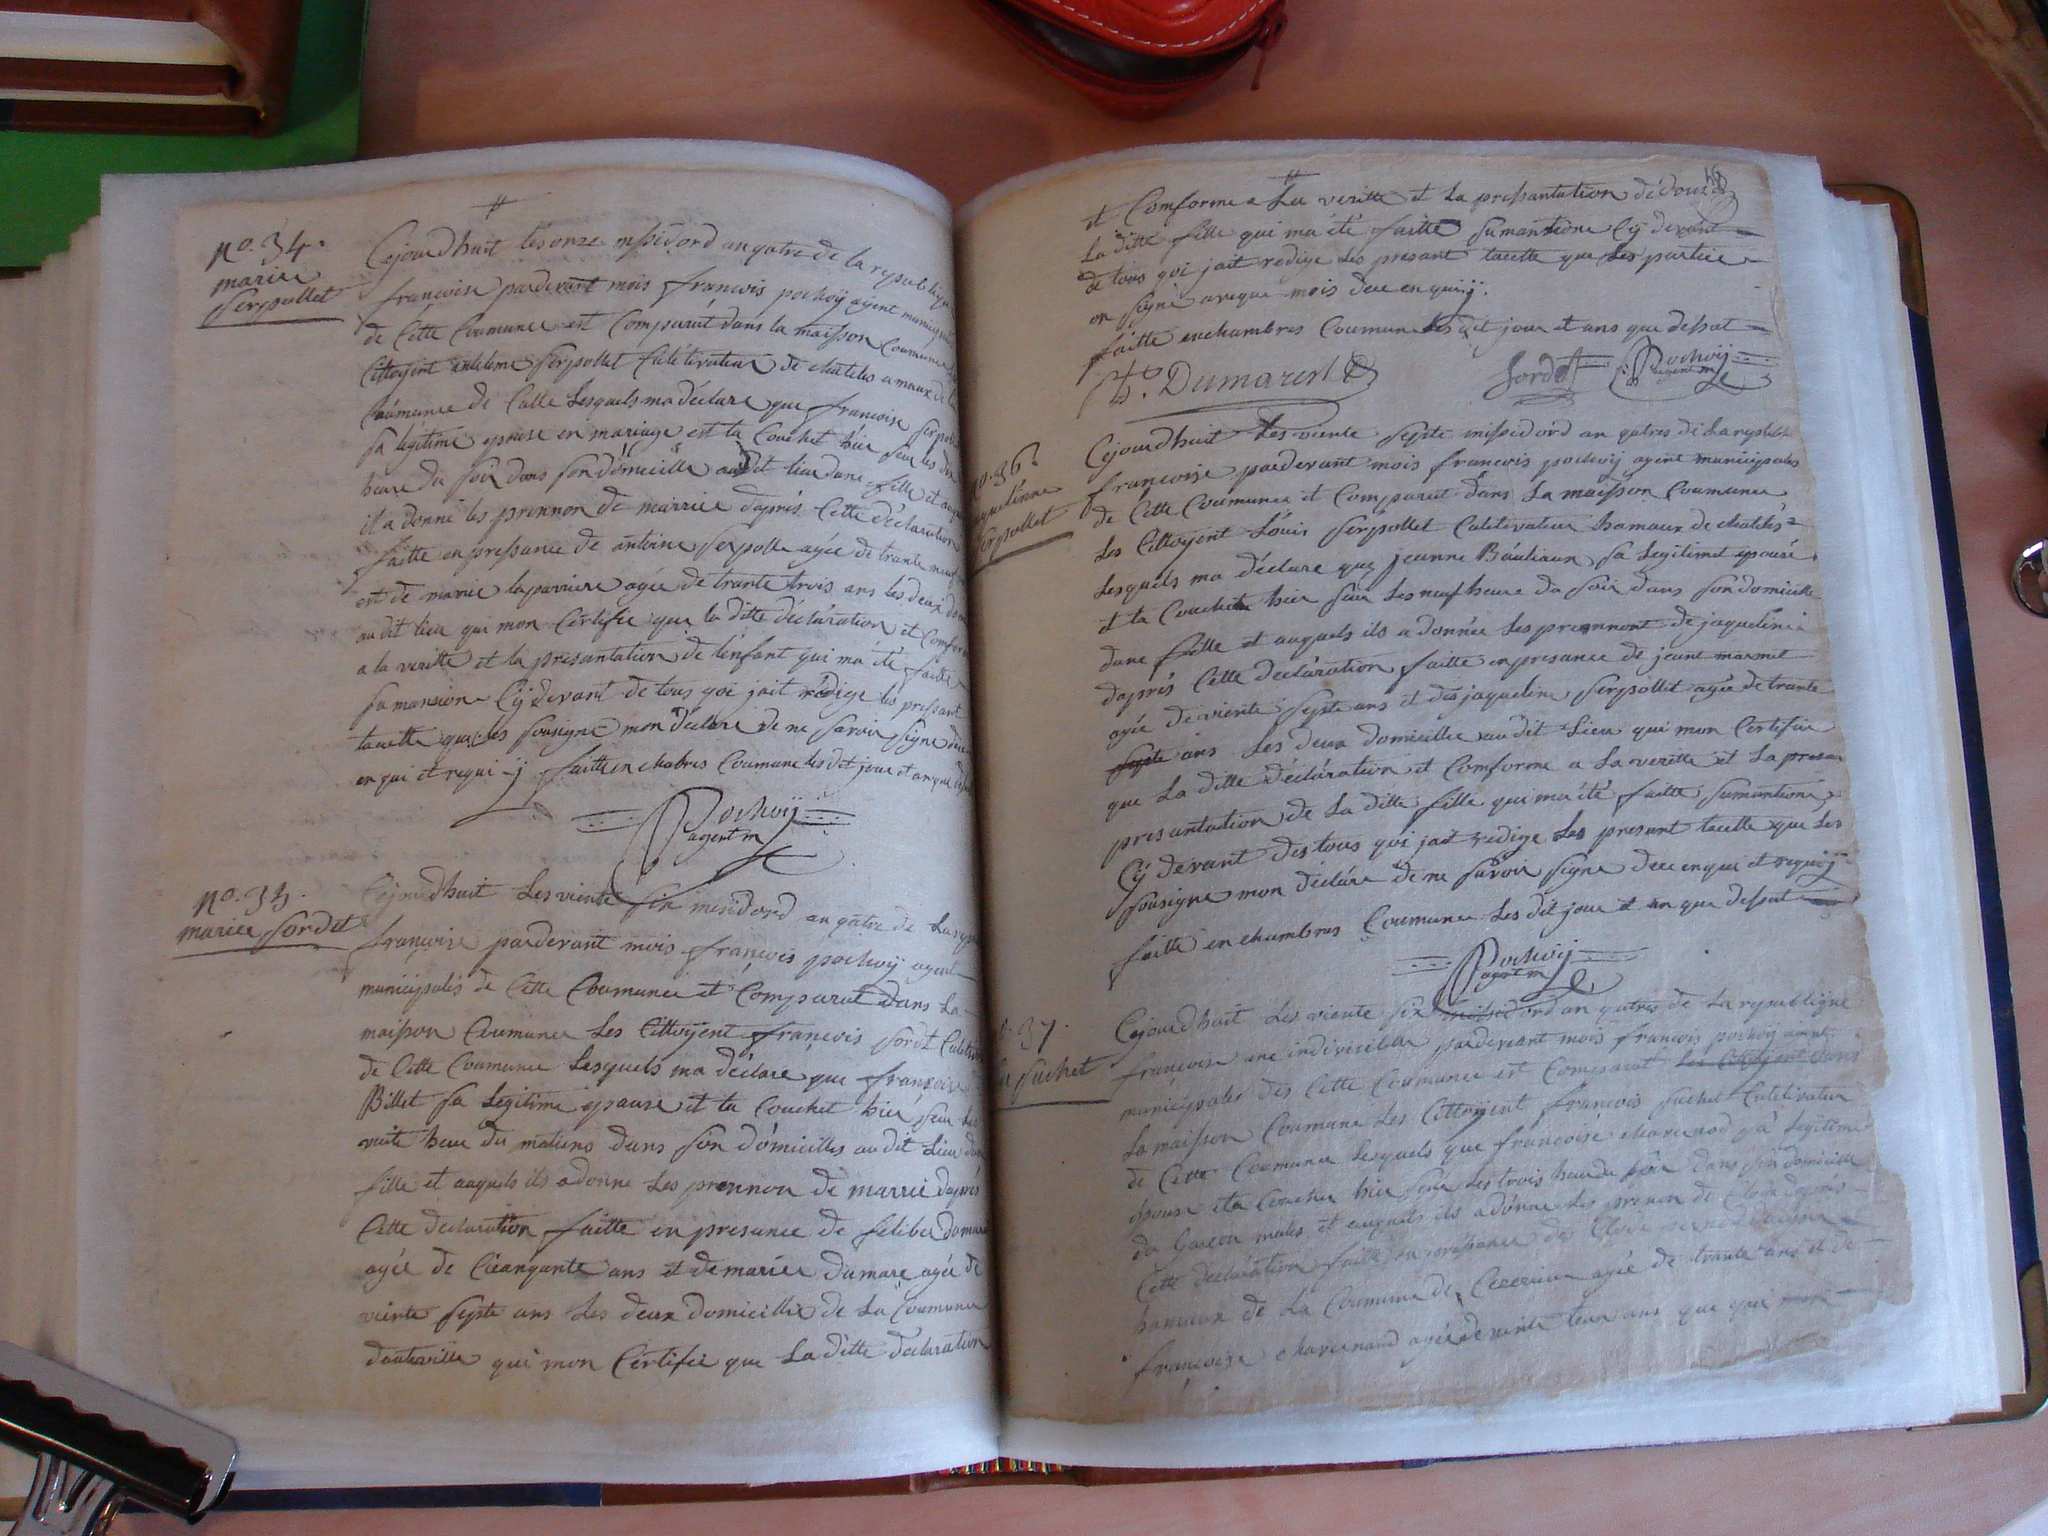 No. 34.
marie
Serpollet
Cejourdhuit les onze missidord an quatre de la republique
francoise pardevant mois francois pochoÿ agent municipales
de Cette Coumunee est Comparut dans la maisson Coumune
Cittoyent Serpollet Culetivateur de chateles amaux de la
Coumunee de Lesquels ma déclare que francoise Serpollet
sa légitime epouse en mariage est ta Couchet hier seur les dix
heure du soir dans son domicille audit lieu dune fille et auquels
il a donné les prennon de marrie daprés Cette déclaration
faitte en pressance de antoine Serpolle agée de trante neuf
est de marie laparriere agée de trante trois ans les deux
audit lieu qui mon Certifie que la ditte déclaration et Comforme
a la veritte et la presantation de lenfant qui ma été faitte
sumansion Cÿ devant de tous qoi jait rédige les pressant
tacette que les sousigne mon déclare de ne savoir signe deu
enqui et requi ÿ faitte en chabres Coumune les dit jour et an que dessut
Pochoÿ
agent m
No. 35.
mariee Sordet
Cejourdhuit Les viente six messidord an quatre de La
francoise pardevant mois francois pochoÿ agent
municipales de Cette Coumunee et Comparut Dans La
maisson Coumunee Les Cittoyent francois Sordet
de Cette Coumunee Lesquels ma déclare que francoise
Billet sa Legitime epouse et ta Couchet hier seur Les
heure du matiens dans son domicilles au dit Lieu dune
fille et auquels ils adonne Les prennon de marrie daprés
Cette declaration faitte en presance de
agée de Cieanquante ans et de mariee Dumare agée de
viente septe ans Les deux domicillie de La Coumunee
dauteville qui mon Certifie que La ditte declaration
et Comforme a La veritte et La pressantation dédouse
La ditte fille qui ma été faitte sumantione Cÿ devant
de tous qoi jait redige Les presant tacette que Les partiee
on signé aveque mois deu enquiÿ.
faitte enchambres Coumune Les dit jour et ans que dessut
Dumarest Sordet Pochoÿ
agent m
No. 36.
jaquelinne
Serpollet
Cejourdhuit Les viente septe missidord an quatres de La republique
francoise pardevant mois francois pochoÿ agent municipales
de Cette Coumunee et Comparut dans La maisson Coumunee
Les Cittoyent Louis Serpollet Culetivateur hamaux de chatelés
Lesquels ma déclare que jeanne Bautiaux sa Legitime epouse
et ta Couchet hier seur Les neuf heure du soir dans son domicille
dune fille et auquels ils a donnée Les prennont de jaquelinne
daprés Cette déclaration faitte en presance de jeant marmet
agée de viente septe ans et des jaqueline Serpollet agée de trante
septe ans Les deux domicillie audit Lieu qui mon Certifie
que La ditte déclaration et Comforme a La veritte et La presan
presantation de La ditte fille qui ma été faitte sumantione
Cÿ devant des tous qoi jait redige Les presant tacette que Les
sousigne mon déclare de ne savoir signe deu enqui et requiÿ
faitte en chambres Coumunee Les dit jour et an que dessut
Pochoÿ
agent m
37.
Suchet
Cejourdhuit Les viente six missidord an quatres de La republique
francoise une indivisible pardevant mois francois pochoÿ agent
municipales des Cette Coumunee est Comparut Les Cittoyent dans
La maisson Coumune Les Cittoyent francois Suchet Culetivateur
de Cette Coumunee Lesquels que francoise charcenod sa Legitime
epouse eta Coucher hier seur Les trois heur du soir dans son domicille
du Garcon males et auquels ils adonne Les prenon de Clode daprés
Cette declaration faitte en pressance de Clode
hamaux de La Coumune de agée de trante ans et de
francoise charcenaud agée de viente ans que qui mon